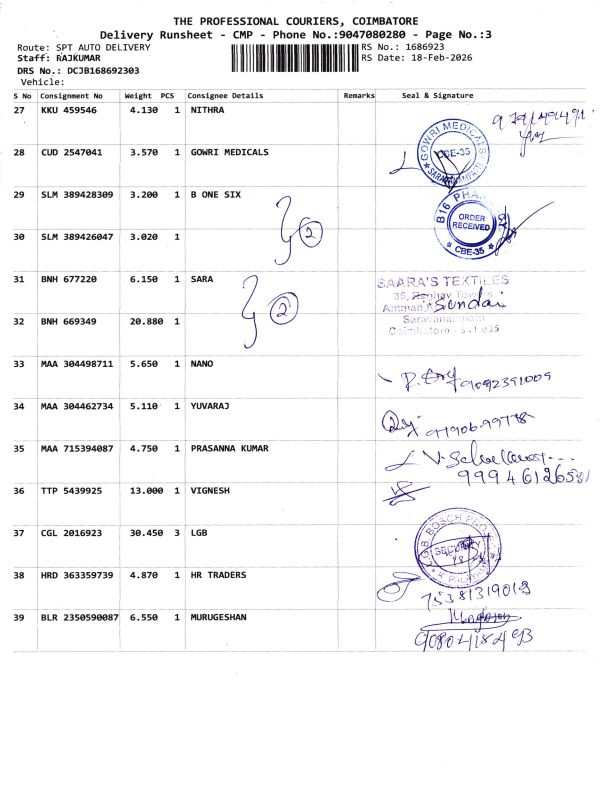 THE PROFESSIONAL COURIERS, COIMBATORE
Delivery Runsheet - CMP - Phone No.:9047080280 - Page No.:3
Route: SPT AUTO DELIVERY RS No.: 1686923
Staff: RAJKUMAR RS Date: 18-Feb-2026
DRS No.: DCJB168692303
Vehicle:
S No Consignment No Weight PCS Consignee Details Remarks Seal & Signature
27 KKU 459546 4.130 1 NITHRA
28 CUD 2547041 3.570 1 GOWRI MEDICALS
GOWRI MEDICALS
CBE-35
29 SLM 389428309 3.200 1 B ONE SIX
2
B16 PHARMACY
ORDER
RECEIVED
CBE-35
30 SLM 389426047 3.020 1
31 BNH 677220 6.150 1 SARA
2
SAARA'S TEXTILES
Sundai
Saravanampatti
Coimbatore - 641 035
32 BNH 669349 20.880 1
33 MAA 304498711 5.650 1 NANO
9092391009
34 MAA 304462734 5.110 1 YUVARAJ
35 MAA 715394087 4.750 1 PRASANNA KUMAR
9994612658
36 TTP 5439925 13.000 1 VIGNESH
37 CGL 2016923 30.450 3 LGB
SECURITY
38 HRD 363359739 4.870 1 HR TRADERS
7538131901
39 BLR 2350590087 6.550 1 MURUGESHAN
Murugesan